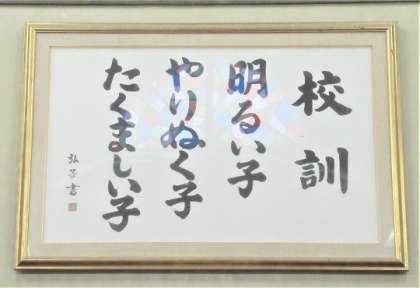 校訓
明るい子
やりぬく子
たくましい子
弘子書